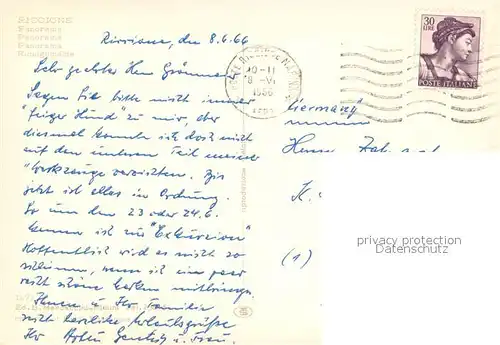 RICCIONE
Panorama
Panorama
Panorama
Riccione, den 8.6.66
Sehr geehrter Herr Grämmer
Sagen Sie bitte nicht immer
"feiger Hund" zu mir, aber
diesmal konnte ich doch nicht
auf den unteren Teil meiner
"Werkzeuge verzichten. Bis
jetzt ist alles in Ordnung.
So um den 23 oder 24.6.
komme ich zur "Exkursion"
Hoffentlich wird es nicht so
schlimm, wenn ich ein paar
recht schöne Karten mitbringe.
Ihnen u Ihr. Familie
recht herzliche Urlaubsgrüße
Ihr u. Frau.
30
LIRE
POSTE ITALIANE
1966
Germany
Herrn
K.
(1)
privacy protection
Datenschutz